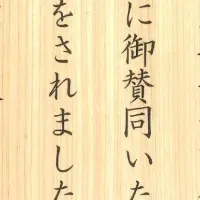 に御賛同いた
をされました